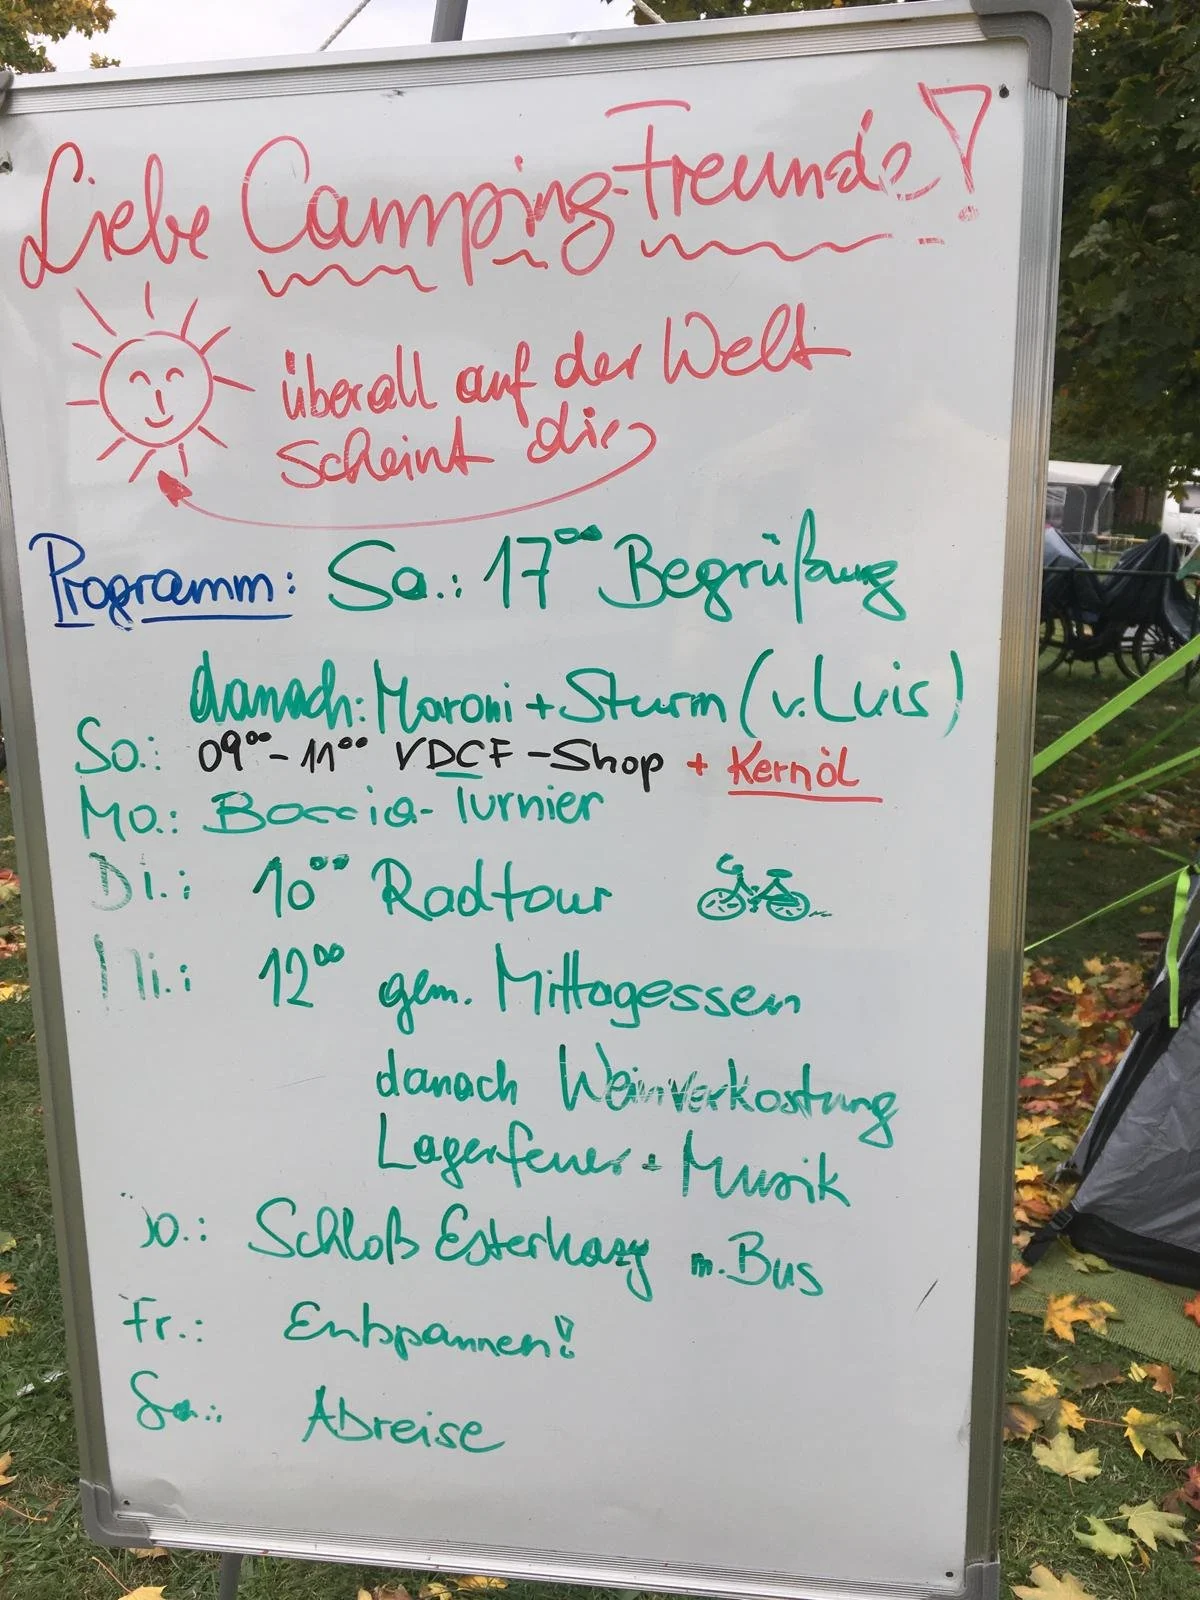 Liebe Camping-Freunde!
überall auf der Welt
scheint die
Programm: Sa.: 17⁰⁰ Begrüßung
danach: Maroni + Sturm (v. Luis)
So.: 09⁰⁰-11⁰⁰ VDCF-Shop + Kernöl
Mo.: Boccia-Turnier
Di.: 10⁰⁰ Radtour
Mi.: 12⁰⁰ gem. Mittagessen
danach Weinverkostung
Lagerfeuer + Musik
Do.: Schloß Esterhazy m. Bus
Fr.: Entspannen!
Sa.: Abreise